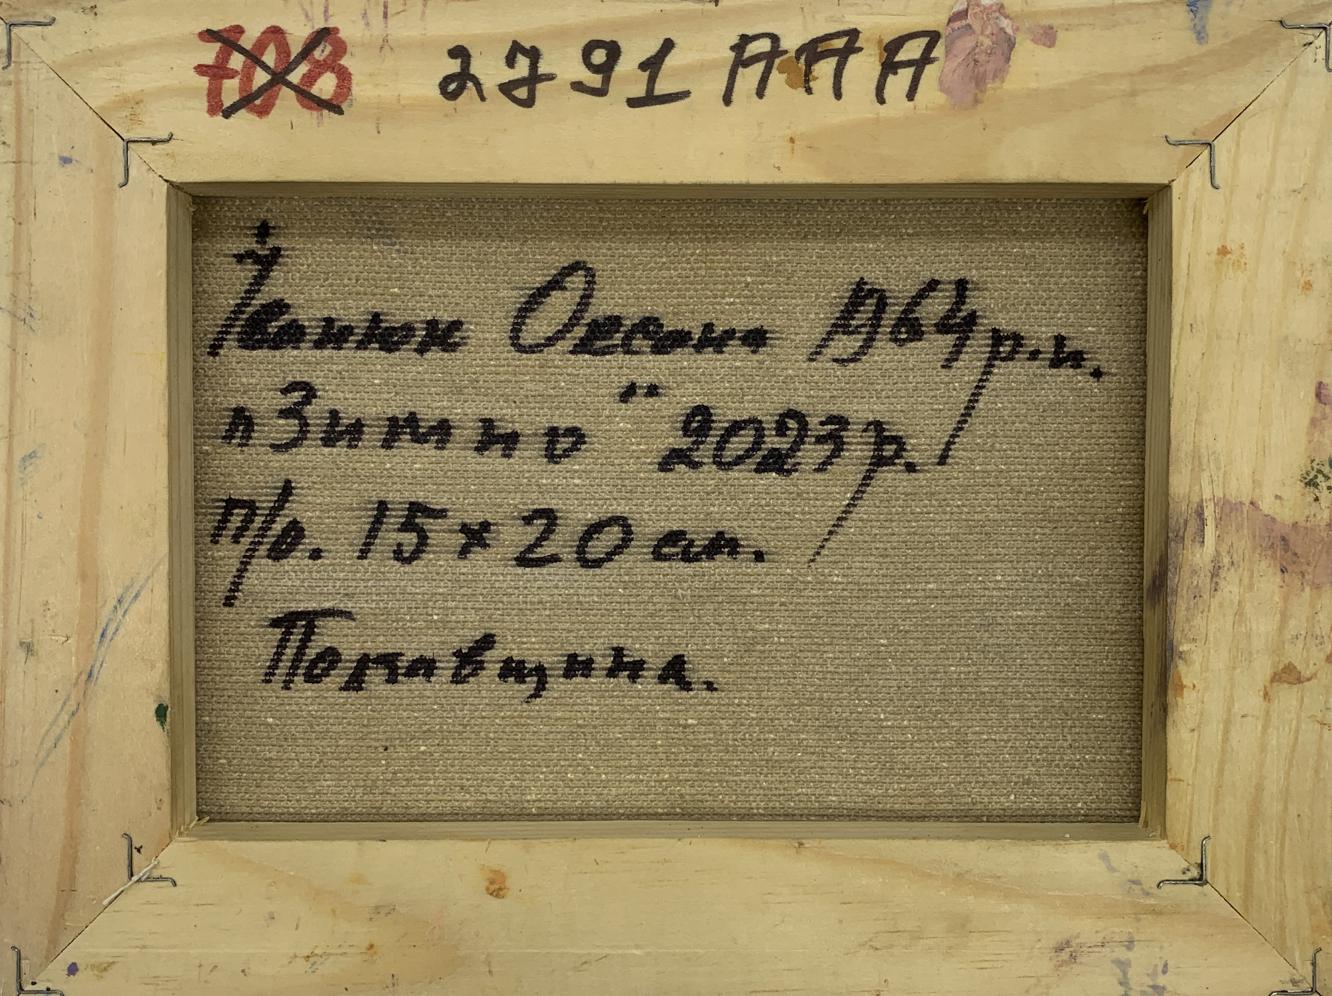 708 2791 AAA
Іванюк Оксана 1964 р.н.
„Зимно" 2023 р.
п/о. 15×20 см.
Полтавщина.